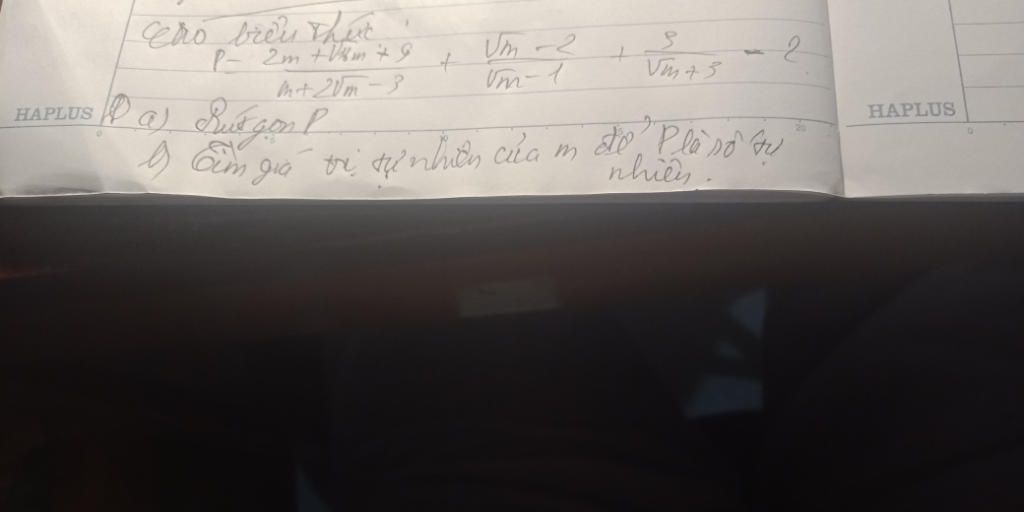 Cho biểu thức
P = \frac{2m + \sqrt{16m} + 9}{m + 2\sqrt{m} - 3} + \frac{\sqrt{m} - 2}{\sqrt{m} - 1} + \frac{3}{\sqrt{m} + 3} - 2
HAPLUS a) Rút gọn P HAPLUS
b) Tìm giá trị tự nhiên của m để P là số tự
nhiên.